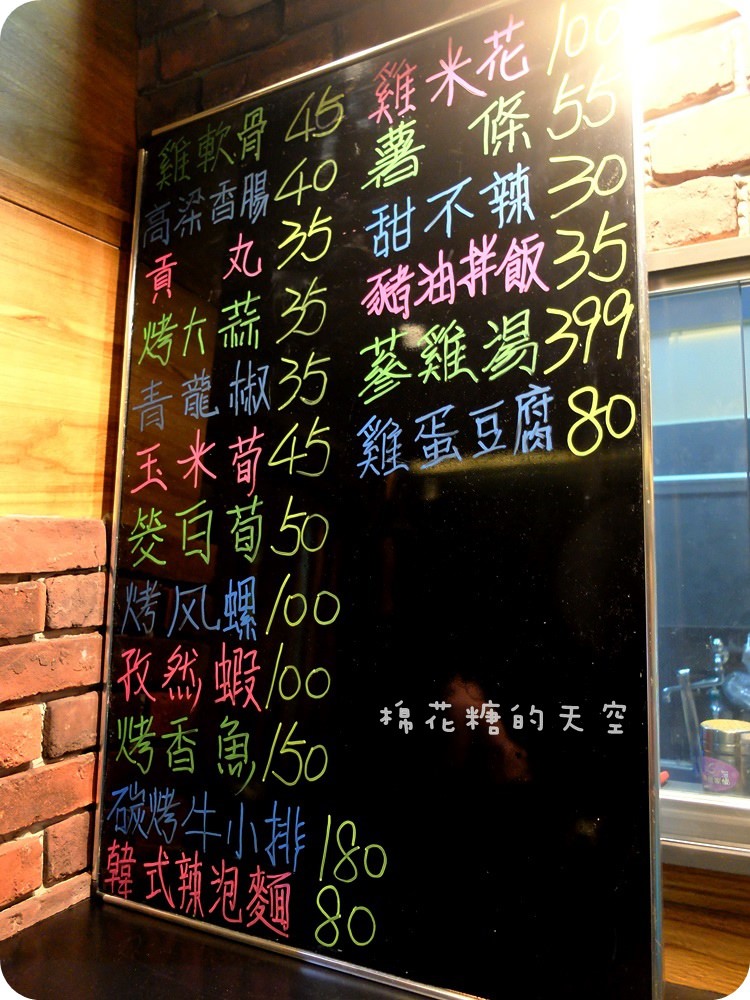 雞軟骨 45
高梁香腸 40
貢丸 35
烤大蒜 35
青龍椒 35
玉米荀 45
筊白荀 50
烤风螺 100
孜然蝦 100
烤香魚 150
碳烤牛小排 180
韓式辣泡麵 80
雞米花 100
薯條 55
甜不辣 30
豬油拌飯 35
蔘雞湯 399
雞蛋豆腐 80
棉花糖的天空